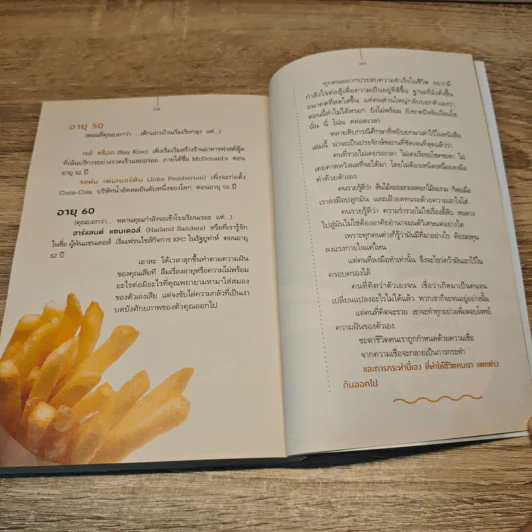 อายุ 50
(ตอนที่คุณบอกว่า ...เด็กแถวบ้านเริ่มเรียกลุง แต่...)
เรย์ คร็อก (Ray Kroc) เพิ่งเริ่มสร้างร้านอาหารฟาสต์ฟู้ด
ที่เน้นบริการอย่างรวดเร็วและอร่อย ภายใต้ชื่อ McDonald's ตอน
อายุ 52 ปี
จอห์น เพมเบอร์ตัน (John Pemberton) เพิ่งจะก่อตั้ง
Coca-Cola บริษัทน้ำอัดลมอันดับหนึ่งของโลก ตอนอายุ 55 ปี
อายุ 60
(ตอนที่คุณบอกว่า หลานคุณกำลังจะเข้าโรงเรียนละ แต่...)
ฮาร์แลนด์ แซนเดอส์ (Harland Sanders) หรือที่เรารู้จัก
ในชื่อ ผู้พันแซนเดอส์ เริ่มแฟรนไชส์กิจการ KFC ในรัฐยูทาห์ ตอนอายุ
62 ปี
เอาละ ได้เวลาลุกขึ้นทำตามความฝัน
ของคุณเสียที ลืมเรื่องอายุหรือความไม่พร้อม
อะไรต่อมิอะไรที่คุณพยายามหามาใส่สมอง
ของตัวเองเสีย แต่จงขับไล่ความกลัวที่เป็นเงา
บดบังศักยภาพของตัวคุณออกไป
ทุกคนอยากประสบความสำเร็จในชีวิต อยากมี
กำลังใจต่อสู้เพื่อความเป็นอยู่ที่ดีขึ้น ฐานะที่มั่งคั่งขึ้น
อนาคตที่สดใสขึ้น แต่คนส่วนใหญ่กลับบอกตัวเองว่า
ตอนนี้ทำไม่ได้หรอก ยังไม่พร้อม ยังขาดปัจจัยเงื่อนไข
นั่น นี่ โน่น ตลอดเวลา
หลายสิบกรณีศึกษาที่หยิบยกมาเล่าไว้ในหนังสือ
เล่มนี้ น่าจะเป็นประจักษ์พยานที่ชัดเจนที่สุดแล้วว่า
คนที่รวยไม่เคยรอเวลา ไม่เคยโทษโชคชะตา ไม่
เคยคาดหวังผลที่จะได้มา โดยไม่ต้องเหน็ดเหนื่อยลงมือ
ทำด้วยตัวเอง
คนรวยรู้ดีว่า ต้นไม้จะออกผลดอกใบได้งาม ก็ต่อเมื่อ
เราลงมือไปปลูกมัน และเฝ้าอดทนรอด้วยความเอาใจใส่
คนรวยรู้ดีว่า ความร่ำรวยไม่ใช่เรื่องลี้ลับ หนทาง
ไปสู่มันไม่ใช่ต้องอาศัยอำนาจมนต์วิเศษแต่อย่างใด
เพราะทุกคนต่างก็รู้ว่ามันมีที่มาอย่างไร ต้องลงทุน
ลงแรงกายใจแค่ไหน
แต่คนที่ลงมือทำเท่านั้น จึงจะไขว่คว้ามันเอาไว้ใน
ครอบครองได้
คนที่คิดว่าตัวเองจน เชื่อว่าเกิดมาเป็นคนจน
เปลี่ยนแปลงอะไรไม่ได้แล้ว พวกเขาก็จะจนอยู่อย่างนั้น
แต่คนที่คิดจะรวย เขาจะทำทุกอย่างเพื่อตอบโจทย์
ความฝันของตัวเอง
ชะตาชีวิตคนเราถูกกำหนดด้วยความเชื่อ
จากความเชื่อจะกลายเป็นการกระทำ
และการกระทำนี้เอง ที่ทำให้ชีวิตคนเรา แตกต่าง
กันออกไป